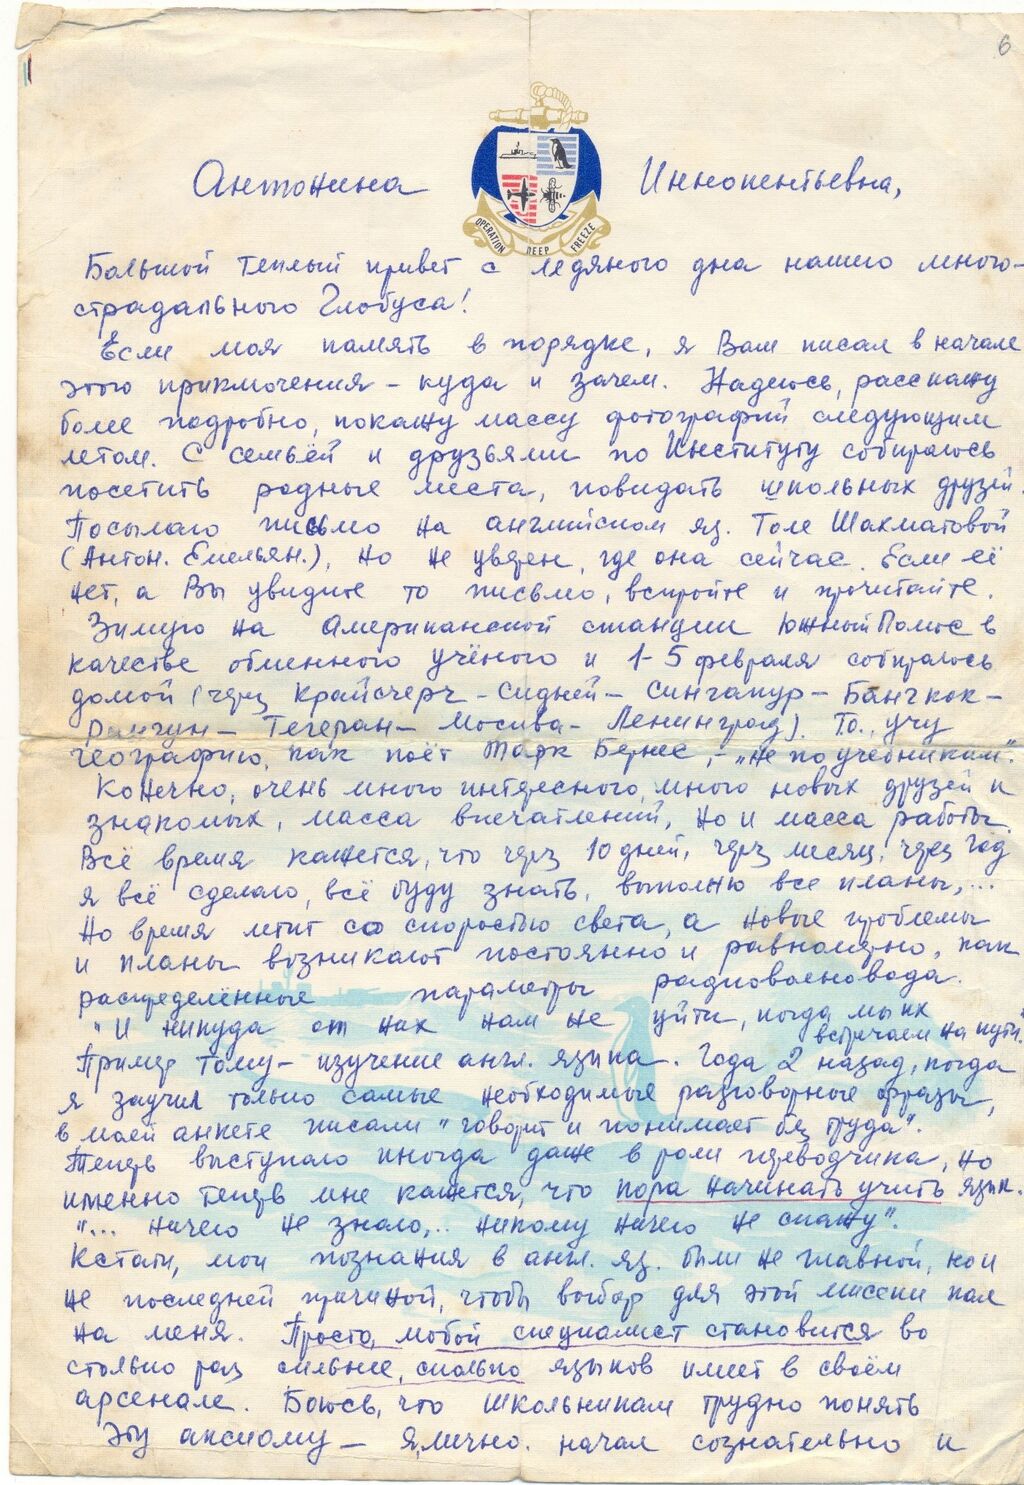 6
OPERATION DEEP FREEZE
Антонина Иннокентьевна,
Большой теплый привет с ледяного дна нашего много-
страдального Глобуса!
Если моя память в порядке, я Вам писал в начале
этого приключения – куда и зачем. Надеюсь, расскажу
более подробно, покажу массу фотографий следующим
летом. С семьёй и друзьями по Институту собираюсь
посетить родные места, повидать школьных друзей.
Посылаю письмо на английском яз. Толе Шахматовой
(Антон. Емельян.), но не уверен, где она сейчас. Если её
нет, а Вы увидите то письмо, вскройте и прочитайте.
Зимую на Американской станции Южный Полюс в
качестве обменного учёного и 1-5 февраля собираюсь
домой (через Крайсчерч – Сидней – Сингапур – Бангкок –
Рангун – Тегеран – Москва – Ленинград). Т.о., учу
географию, как поёт Марк Бернес, – „не по учебникам".
Конечно, очень много интересного, много новых друзей и
знакомых, масса впечатлений, но и масса работы.
Всё время кажется, что через 10 дней, через месяц, через год
я всё сделаю, всё буду знать, выполню все планы,...
Но время летит со скоростью света, а новые проблемы
и планы возникают постоянно и равномерно, как
распределённые параметры радиоволновода.
"И никуда от них нам не уйти, когда мы их
встречаем на пути."
Пример тому – изучение англ. языка. Года 2 назад, когда
я заучил только самые необходимые разговорные фразы,
в моей анкете писали "говорит и понимает без труда".
Теперь выступаю иногда даже в роли переводчика, но
именно теперь мне кажется, что пора начинать учить язык.
"... ничего не знаю,.. никому ничего не скажу".
Кстати, мои познания в англ. яз. были не главной, но и
не последней причиной, чтобы выбор для этой миссии пал
на меня. Просто, любой специалист становится во
столько раз сильнее, сколько языков имеет в своём
арсенале. Боюсь, что школьникам трудно понять
эту аксиому – я, лично, начал сознательно и